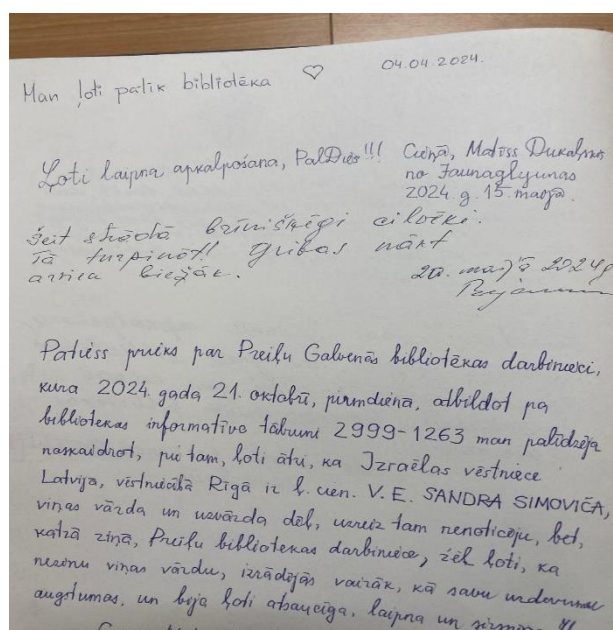 Man ļoti patīk bibliotēka ♡ 04.04.2024.
Ļoti laipna apkalpošana, PalDies!!! Cieņā, Matīss Dukaļskis
no Jaunaglyunas
2024.g. 15. maijā.
Šeit strādā brīnišķīgi cilvēki.
Tā turpināt! Gribas nākt
arvien biežāk. 20. maijā 2024g
Patiess prieks par Preiļu Galvenās bibliotēkas darbinieci,
kura 2024. gada 21. oktobrī, pirmdienā, atbildot pa
bibliotekas informatīvo tālruni 2999-1263 man palīdzēja
noskaidrot, pie tam, ļoti ātri, ka Izraēlas vēstniece
Latvijā, vēstniecībā Rīgā ir ļ. cien. V. E. SANDRA SIMOVIČA,
viņas vārda un uzvārda dēļ, uzreiz tam nenoticēju, bet,
katrā ziņā, Preiļu bibliotekas darbiniece, žēl ļoti, ka
nezinu viņas vārdu, izrādījās vairāk, kā savu uzdevumu
augstumos, un bija ļoti atsaucīga, laipna un